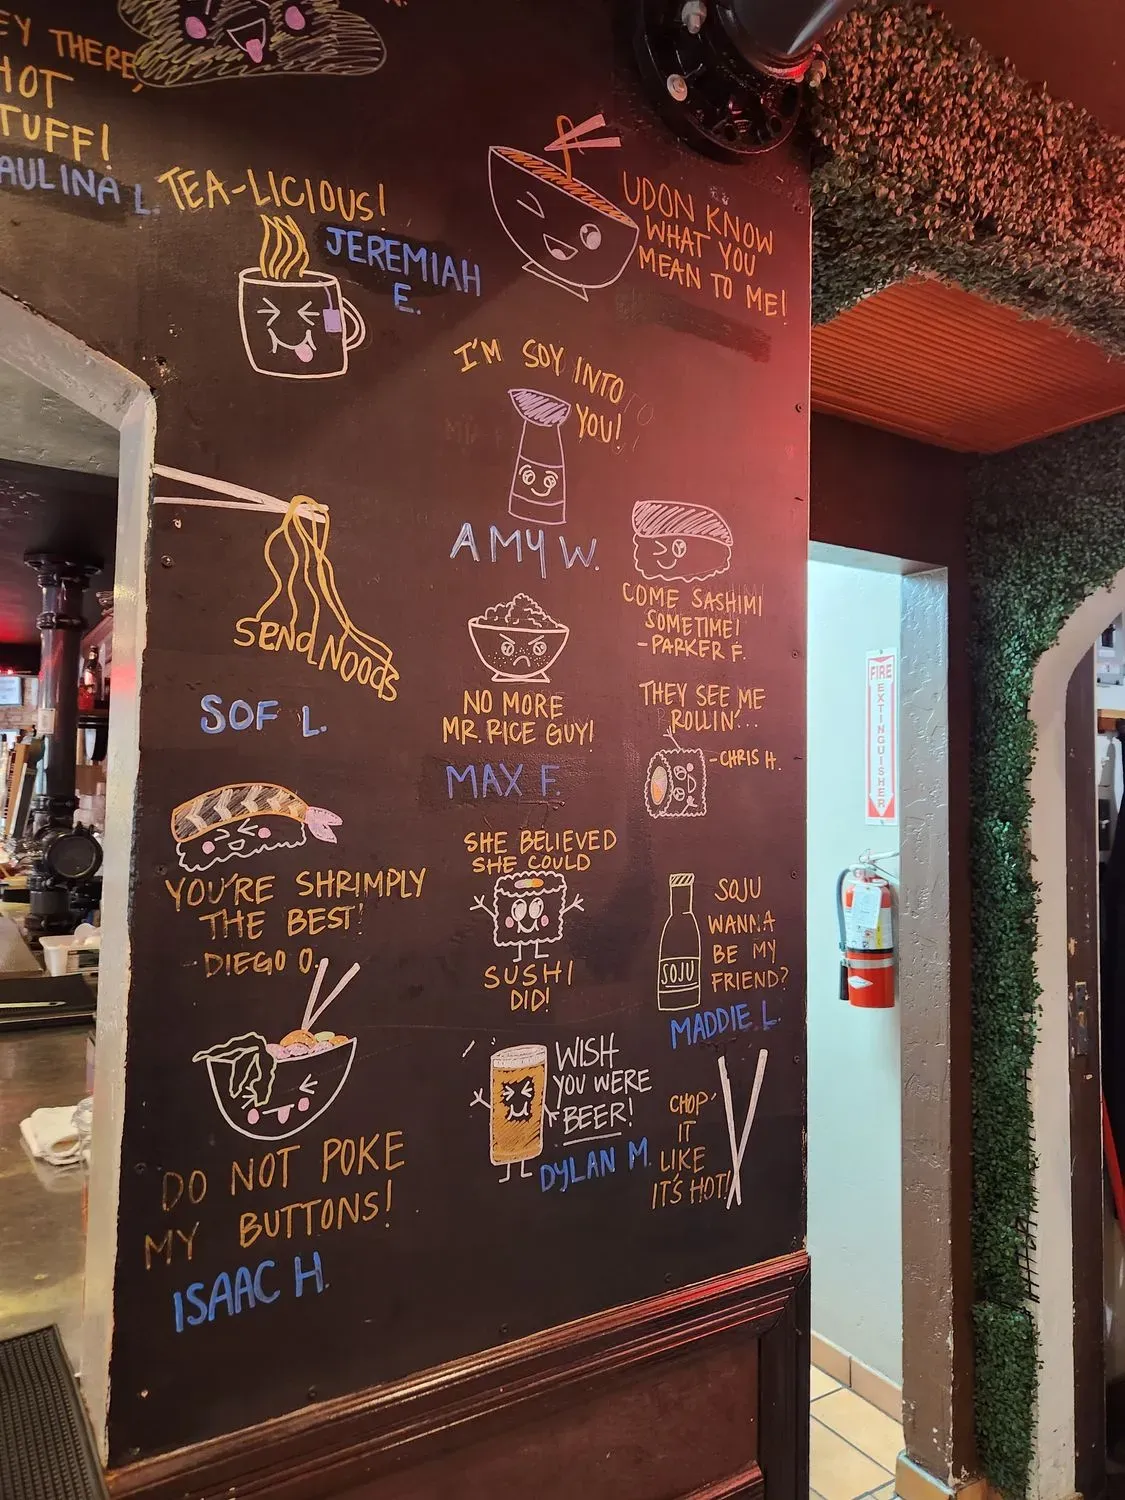 THERE,
HOT
TUFF!
AULINA L.
TEA-LICIOUS!
JEREMIAH
E.
UDON KNOW
WHAT YOU
MEAN TO ME!
I'M SOY INTO
YOU!
AMY W.
SEND NOODS
SOF L.
COME SASHIMI
SOMETIME!
-PARKER F.
NO MORE
MR. RICE GUY!
MAX F.
THEY SEE ME
ROLLIN'...
-CHRIS H.
YOU'RE SHRIMPLY
THE BEST!
-DIEGO O.
SHE BELIEVED
SHE COULD
SUSHI
DID!
SOJU
WANNA
BE MY
FRIEND?
SOJU
MADDIE L.
DO NOT POKE
MY BUTTONS!
ISAAC H.
WISH
YOU WERE
BEER!
DYLAN M.
CHOP
IT
LIKE
IT'S HOT!
FIRE
EXTINGUISHER